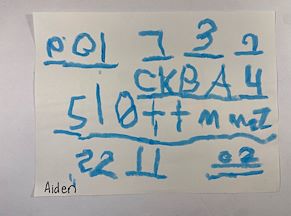 PQ1 7 3 2
CKBA4
510ttmmzI
22 11 02
Aiden